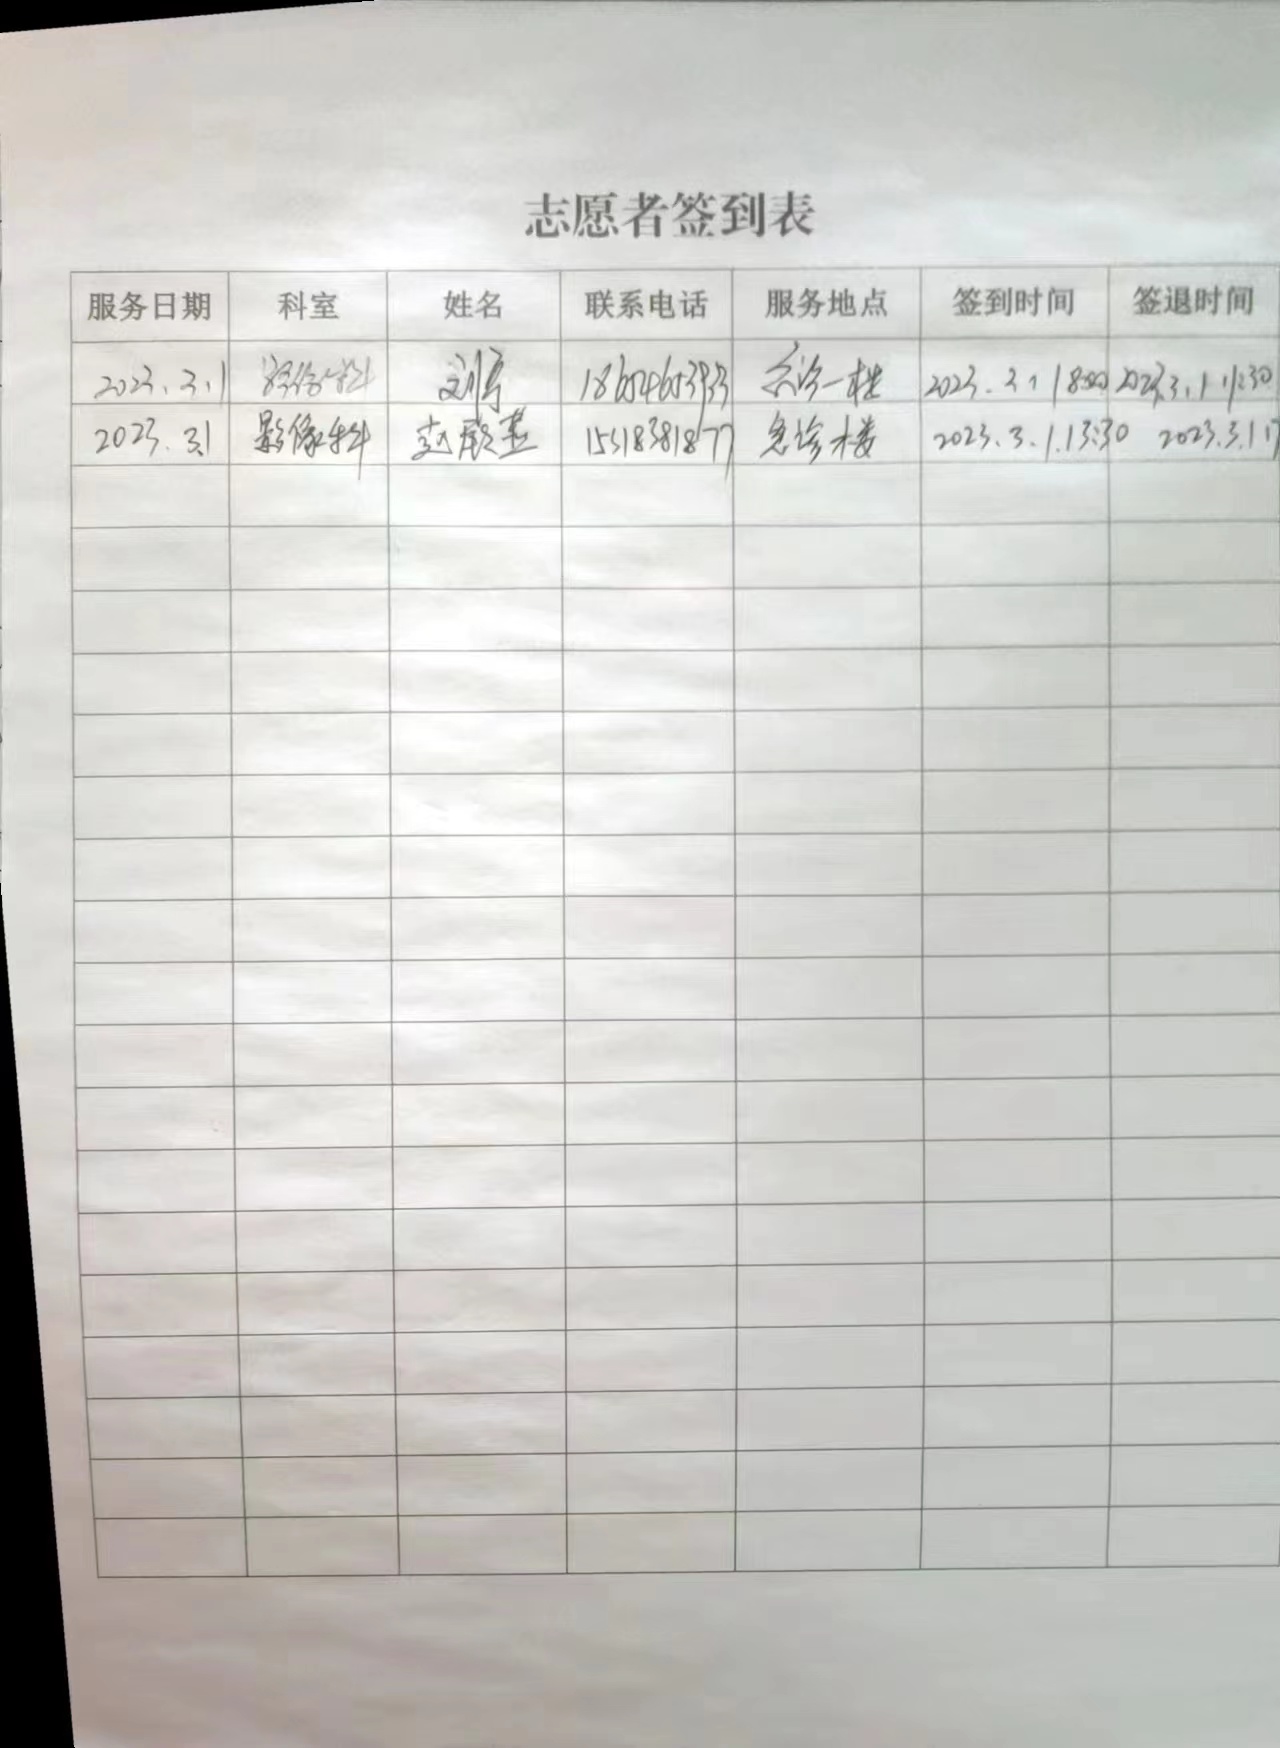 志愿者签到表
服务日期 科室 姓名 联系电话 服务地点 签到时间 签退时间
2023.3.1 影像科 刘 急诊一楼 2023.3.1 8:00 2023.3.1 11:30
2023.3.1 影像科 赵 15318381877 急诊楼 2023.3.1.13:30 2023.3.1 17